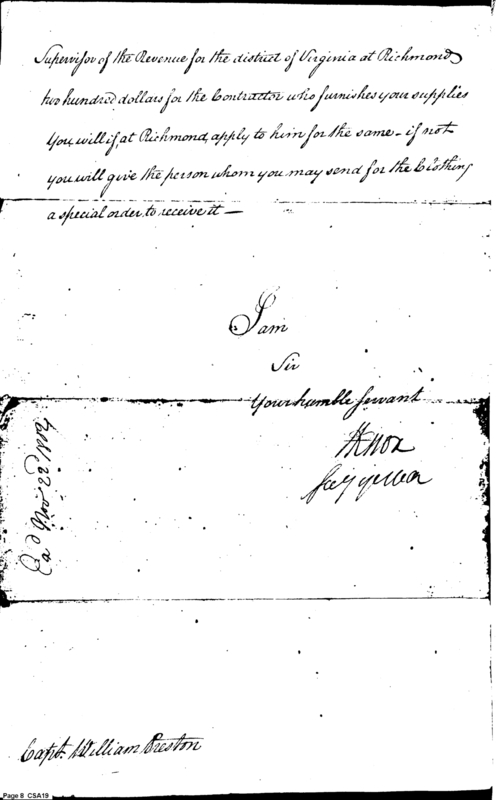 Supervisor of the Revenue for the district of Virginia at Richmond
two hundred dollars for the Contractor who furnishes your supplies
You will if, at Richmond, apply to him for the same – if not
you will give the person whom you may send for the Clothing
a special order, to receive it —
I am
Sir
Your humble Servant
HKnox
Secy of War
Capt. William Preston
Page 8 CSA19